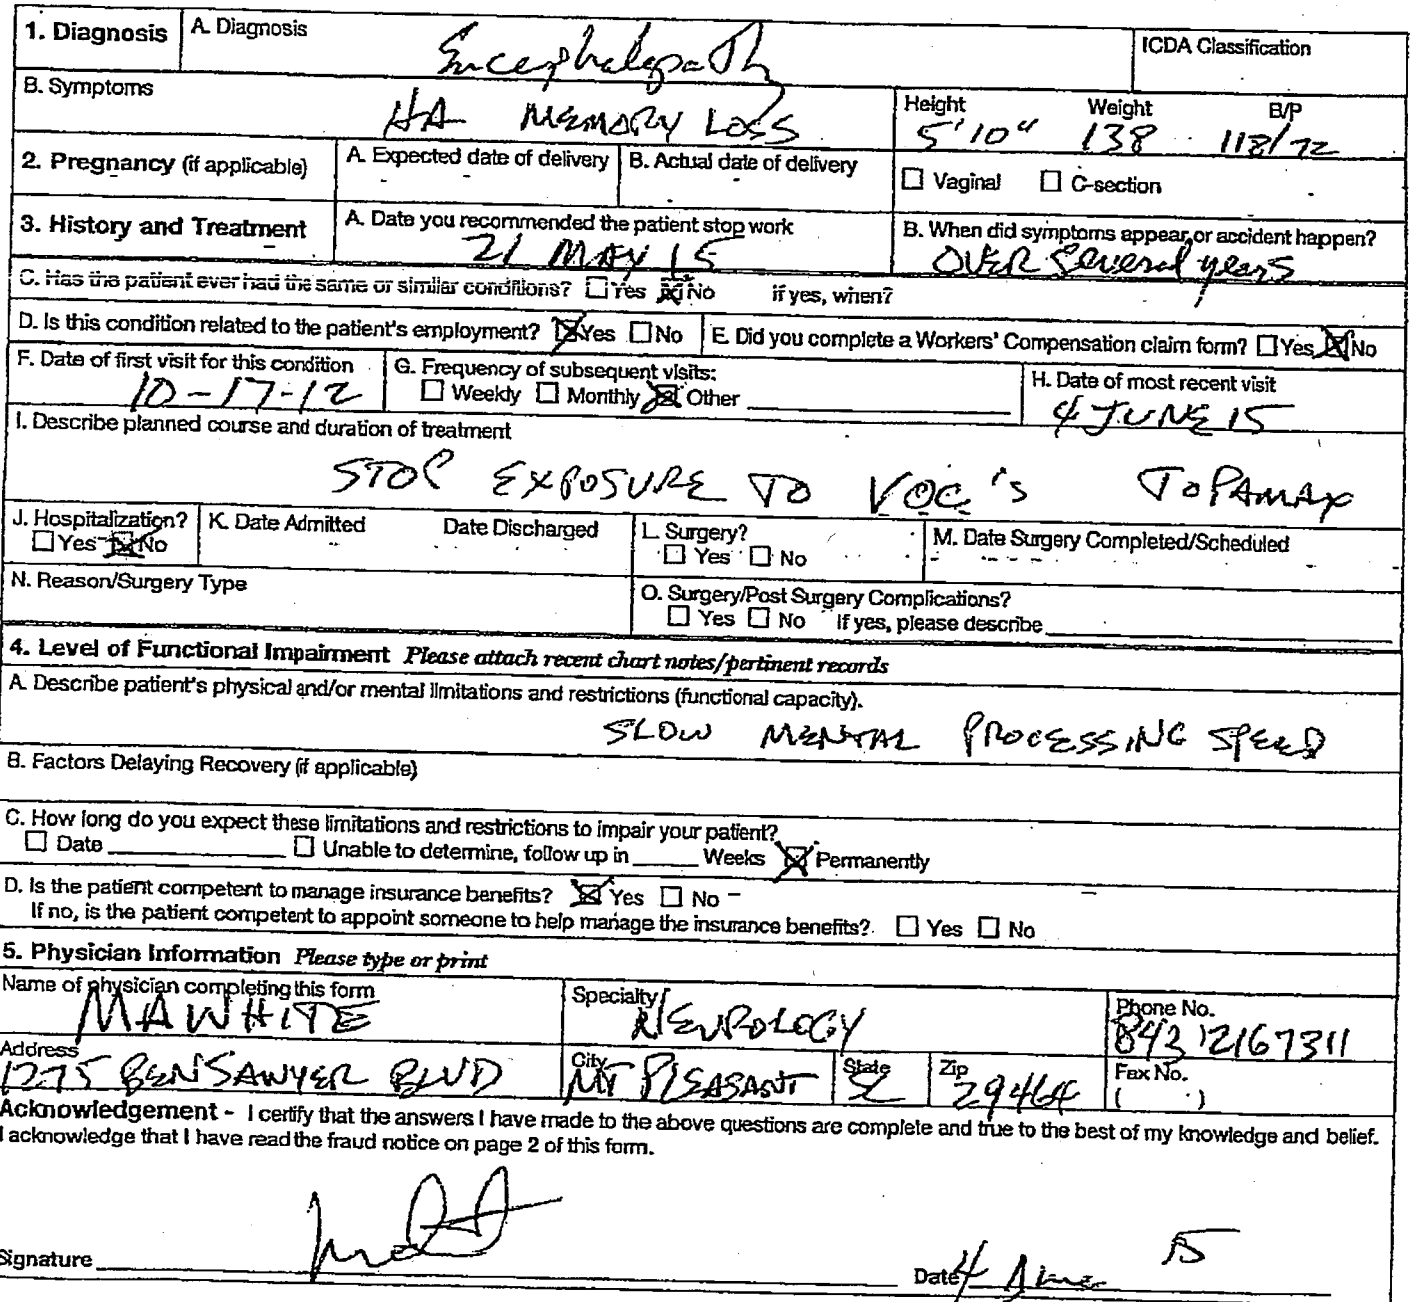 1. Diagnosis A. Diagnosis Encephalopathy ICDA Classification
B. Symptoms HA MEMORY LOSS Height 5'10" Weight 138 B/P 118/72
2. Pregnancy (if applicable) A. Expected date of delivery B. Actual date of delivery ☐ Vaginal ☐ C-section
3. History and Treatment A. Date you recommended the patient stop work 21 MAY 15 B. When did symptoms appear or accident happen? OVER Several years
C. Has the patient ever had the same or similar conditions? ☐ Yes ☒ No if yes, when?
D. Is this condition related to the patient's employment? ☒ Yes ☐ No E. Did you complete a Workers' Compensation claim form? ☐ Yes ☒ No
F. Date of first visit for this condition 10-17-12 G. Frequency of subsequent visits: ☐ Weekly ☐ Monthly ☒ Other H. Date of most recent visit 4 JUNE 15
I. Describe planned course and duration of treatment
STOP EXPOSURE TO VOC's TOPAMAX
J. Hospitalization? ☐ Yes ☒ No K. Date Admitted Date Discharged L. Surgery? ☐ Yes ☐ No M. Date Surgery Completed/Scheduled
N. Reason/Surgery Type O. Surgery/Post Surgery Complications? ☐ Yes ☐ No If yes, please describe
4. Level of Functional Impairment Please attach recent chart notes/pertinent records
A. Describe patient's physical and/or mental limitations and restrictions (functional capacity).
SLOW MENTAL PROCESSING SPEED
B. Factors Delaying Recovery (if applicable)
C. How long do you expect these limitations and restrictions to impair your patient?
☐ Date ☐ Unable to determine, follow up in Weeks ☒ Permanently
D. Is the patient competent to manage insurance benefits? ☒ Yes ☐ No
If no, is the patient competent to appoint someone to help manage the insurance benefits? ☐ Yes ☐ No
5. Physician Information Please type or print
Name of physician completing this form MAWHITE Specialty NEUROLOGY Phone No. 843 2167311
Address 1275 BEN SAWYER BLVD City MT PLEASANT State SC Zip 29464 Fax No. ( )
Acknowledgement - I certify that the answers I have made to the above questions are complete and true to the best of my knowledge and belief.
I acknowledge that I have read the fraud notice on page 2 of this form.
Signature Date 4 June 15